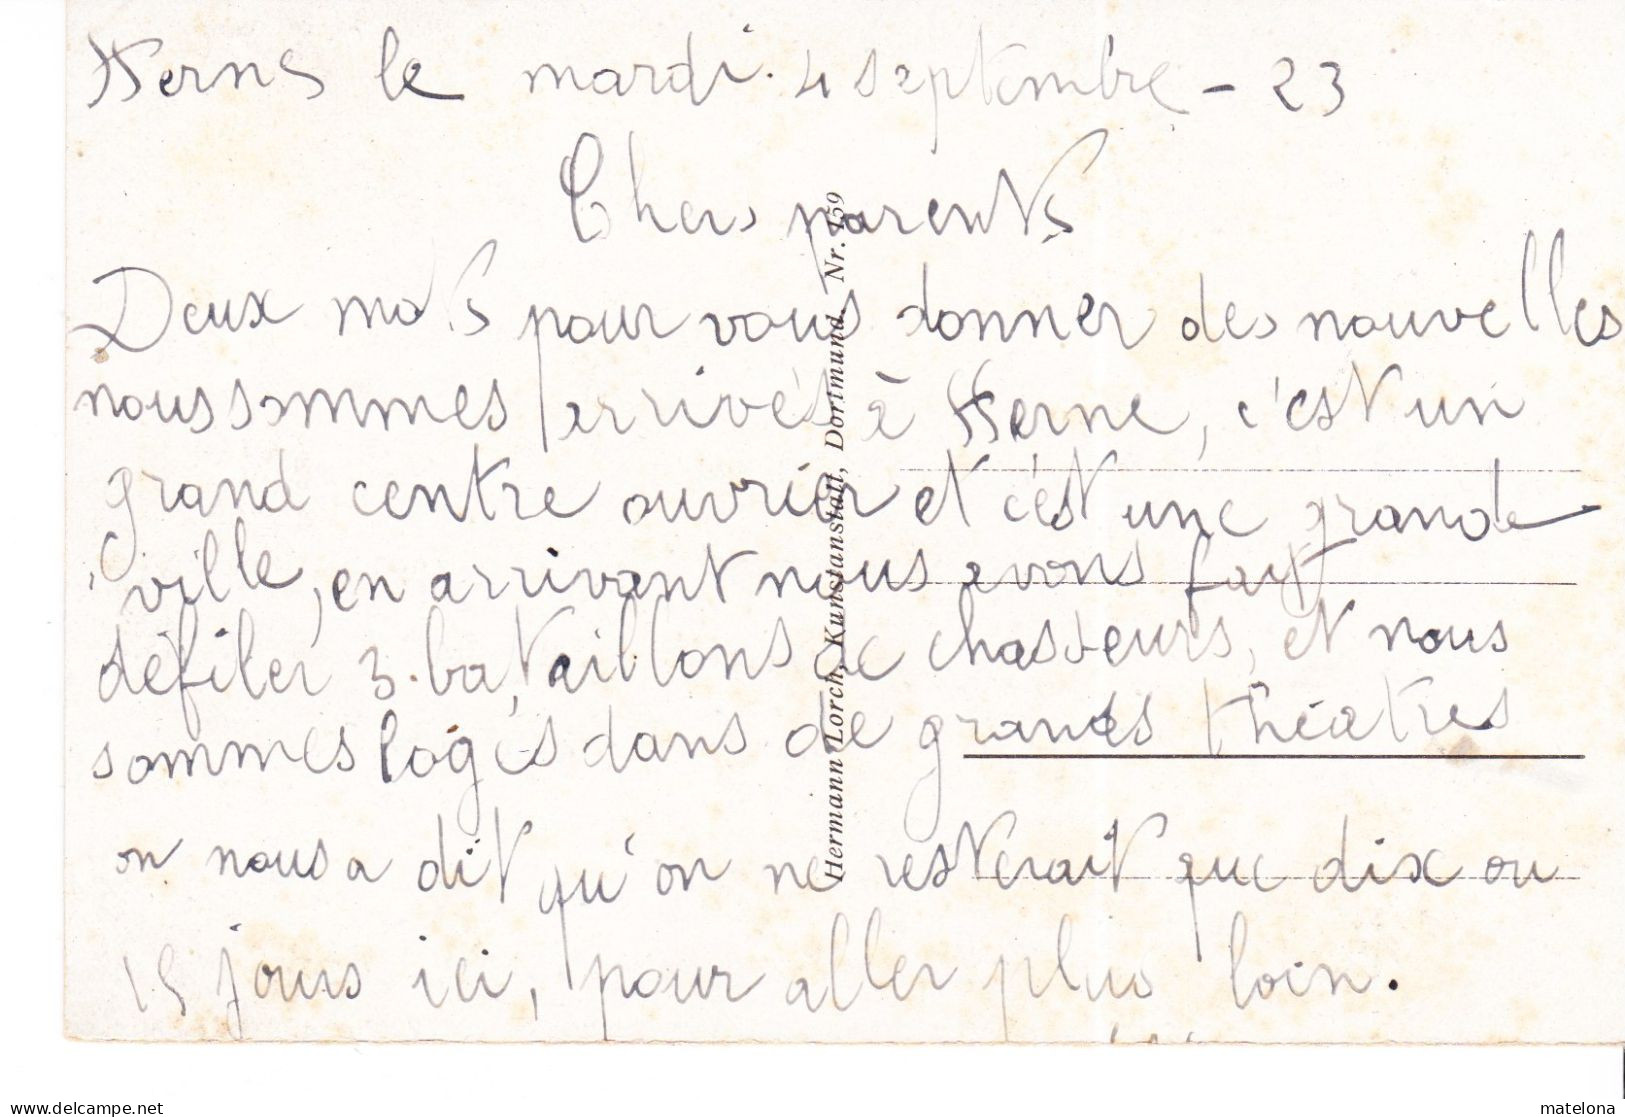 Herne le mardi. 4 septembre - 23
Chers parents
Deux mots pour vous donner des nouvelles
nous sommes arrivés à Herne, c'est un
grand centre ouvrier et c'est une grande
ville, en arrivant nous avons fait
défiler 3. bataillons de chasseurs, et nous
sommes logés dans de grands théatres
on nous a dit qu'on ne resterait que dix ou
15 jours ici, pour aller plus loin.
Hermann Lorch, Kunstanstalt, Dortmund Nr. 159
delcampe.net
matelona